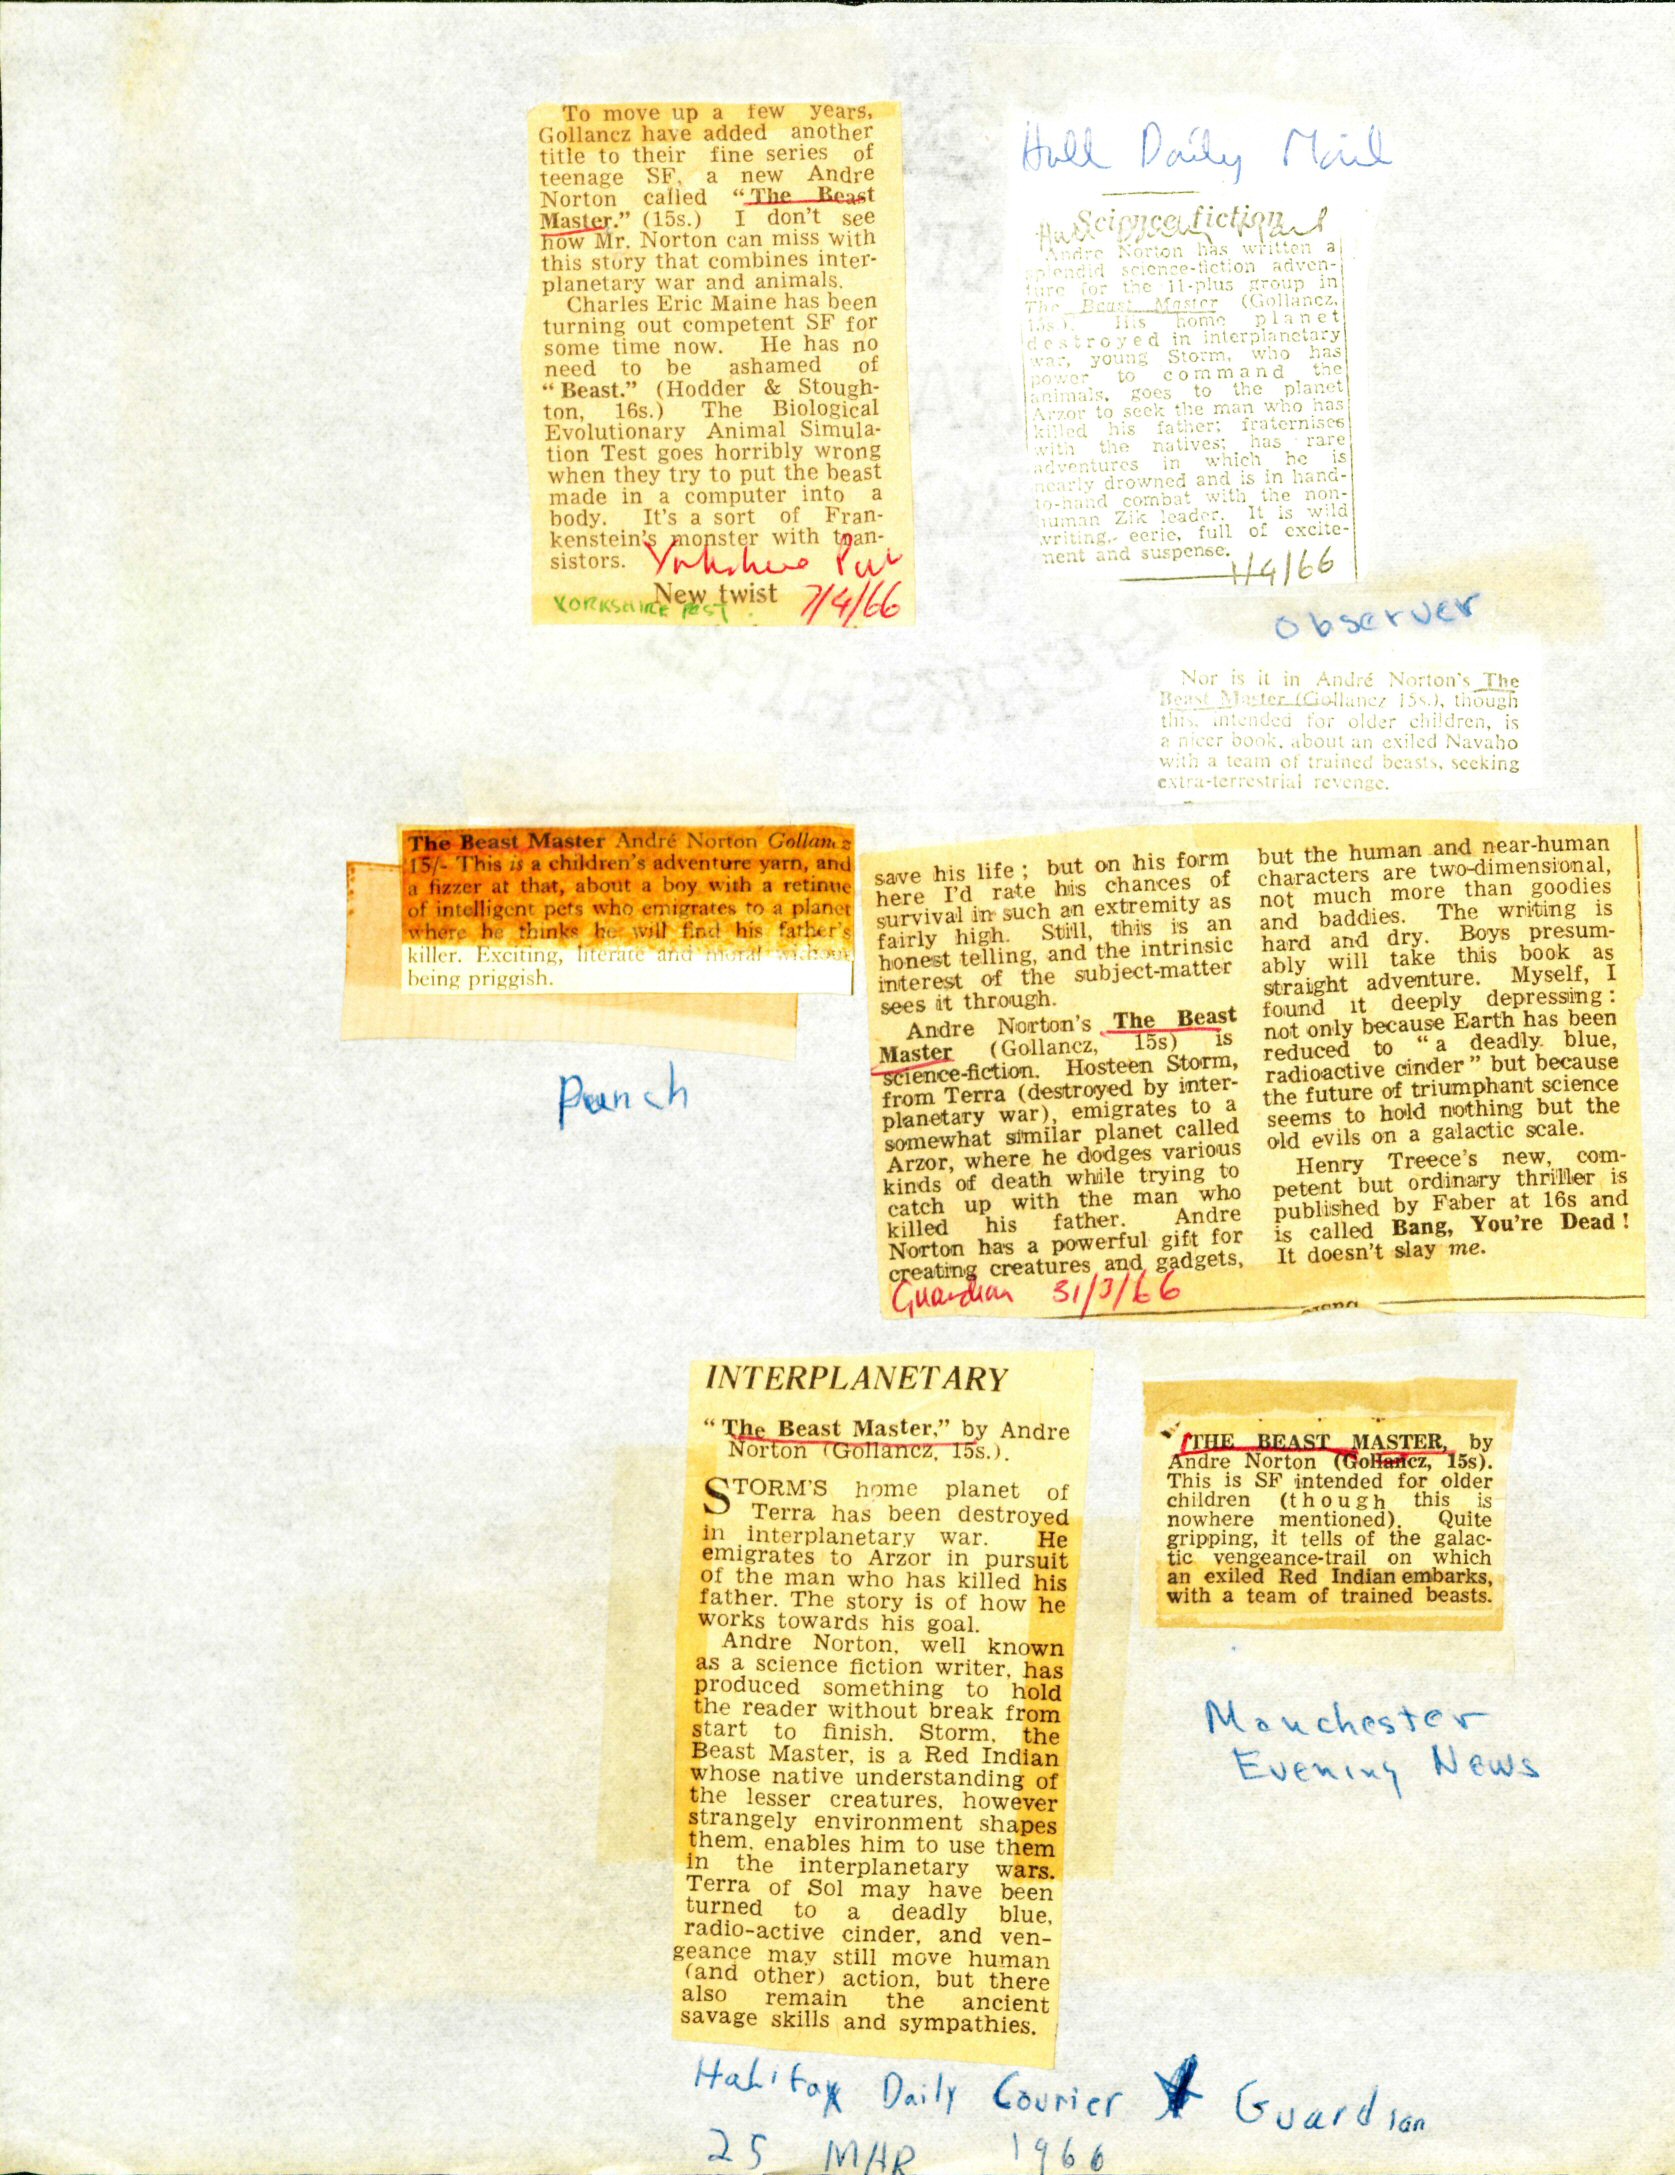 To move up a few years,
Gollancz have added another
title to their fine series of
teenage SF, a new Andre
Norton called "The Beast
Master." (15s.) I don't see
how Mr. Norton can miss with
this story that combines inter-
planetary war and animals.
Charles Eric Maine has been
turning out competent SF for
some time now. He has no
need to be ashamed of
"Beast." (Hodder & Stough-
ton, 16s.) The Biological
Evolutionary Animal Simula-
tion Test goes horribly wrong
when they try to put the beast
made in a computer into a
body. It's a sort of Fran-
kenstein's monster with tran-
sistors.
Yorkshire Post
New twist
YORKSHIRE POST
7/4/66
Hull Daily Mail
Science fiction
Hull Daily Mail
Andre Norton has written a
splendid science-fiction adven-
ture for the 11-plus group in
The Beast Master (Gollancz,
15s.). His home planet
destroyed in interplanetary
war, young Storm, who has
power to command the
animals, goes to the planet
Arzor to seek the man who has
killed his father; fraternises
with the natives; has rare
adventures in which he is
nearly drowned and is in hand-
to-hand combat with the non-
human Zik leader. It is wild
writing, eerie, full of excite-
ment and suspense.
1/4/66
observer
Nor is it in André Norton's The
Beast Master (Gollancz 15s.), though
this, intended for older children, is
a nicer book, about an exiled Navaho
with a team of trained beasts, seeking
extra-terrestrial revenge.
The Beast Master André Norton Gollancz
15/- This is a children's adventure yarn, and
a fizzer at that, about a boy with a retinue
of intelligent pets who emigrates to a planet
where he thinks he will find his father's
killer. Exciting, literate and moral without
being priggish.
Punch
save his life; but on his form
here I'd rate his chances of
survival in such an extremity as
fairly high. Still, this is an
honest telling, and the intrinsic
interest of the subject-matter
sees it through.
Andre Norton's The Beast
Master (Gollancz, 15s) is
science-fiction. Hosteen Storm,
from Terra (destroyed by inter-
planetary war), emigrates to a
somewhat similar planet called
Arzor, where he dodges various
kinds of death while trying to
catch up with the man who
killed his father. Andre
Norton has a powerful gift for
creating creatures and gadgets,
but the human and near-human
characters are two-dimensional,
not much more than goodies
and baddies. The writing is
hard and dry. Boys presum-
ably will take this book as
straight adventure. Myself, I
found it deeply depressing:
not only because Earth has been
reduced to "a deadly blue,
radioactive cinder" but because
the future of triumphant science
seems to hold nothing but the
old evils on a galactic scale.
Henry Treece's new, com-
petent but ordinary thriller is
published by Faber at 16s and
is called Bang, You're Dead!
It doesn't slay me.
Guardian 31/3/66
INTERPLANETARY
"The Beast Master," by Andre
Norton (Gollancz, 15s.).
STORM'S home planet of
Terra has been destroyed
in interplanetary war. He
emigrates to Arzor in pursuit
of the man who has killed his
father. The story is of how he
works towards his goal.
Andre Norton, well known
as a science fiction writer, has
produced something to hold
the reader without break from
start to finish. Storm, the
Beast Master, is a Red Indian
whose native understanding of
the lesser creatures, however
strangely environment shapes
them, enables him to use them
in the interplanetary wars.
Terra of Sol may have been
turned to a deadly blue,
radio-active cinder, and ven-
geance may still move human
(and other) action, but there
also remain the ancient
savage skills and sympathies.
Halifax Daily Courier Guardian
25 MAR 1966
THE BEAST MASTER, by
Andre Norton (Gollancz, 15s).
This is SF intended for older
children (though this is
nowhere mentioned). Quite
gripping, it tells of the galac-
tic vengeance-trail on which
an exiled Red Indian embarks,
with a team of trained beasts.
Manchester
Evening News